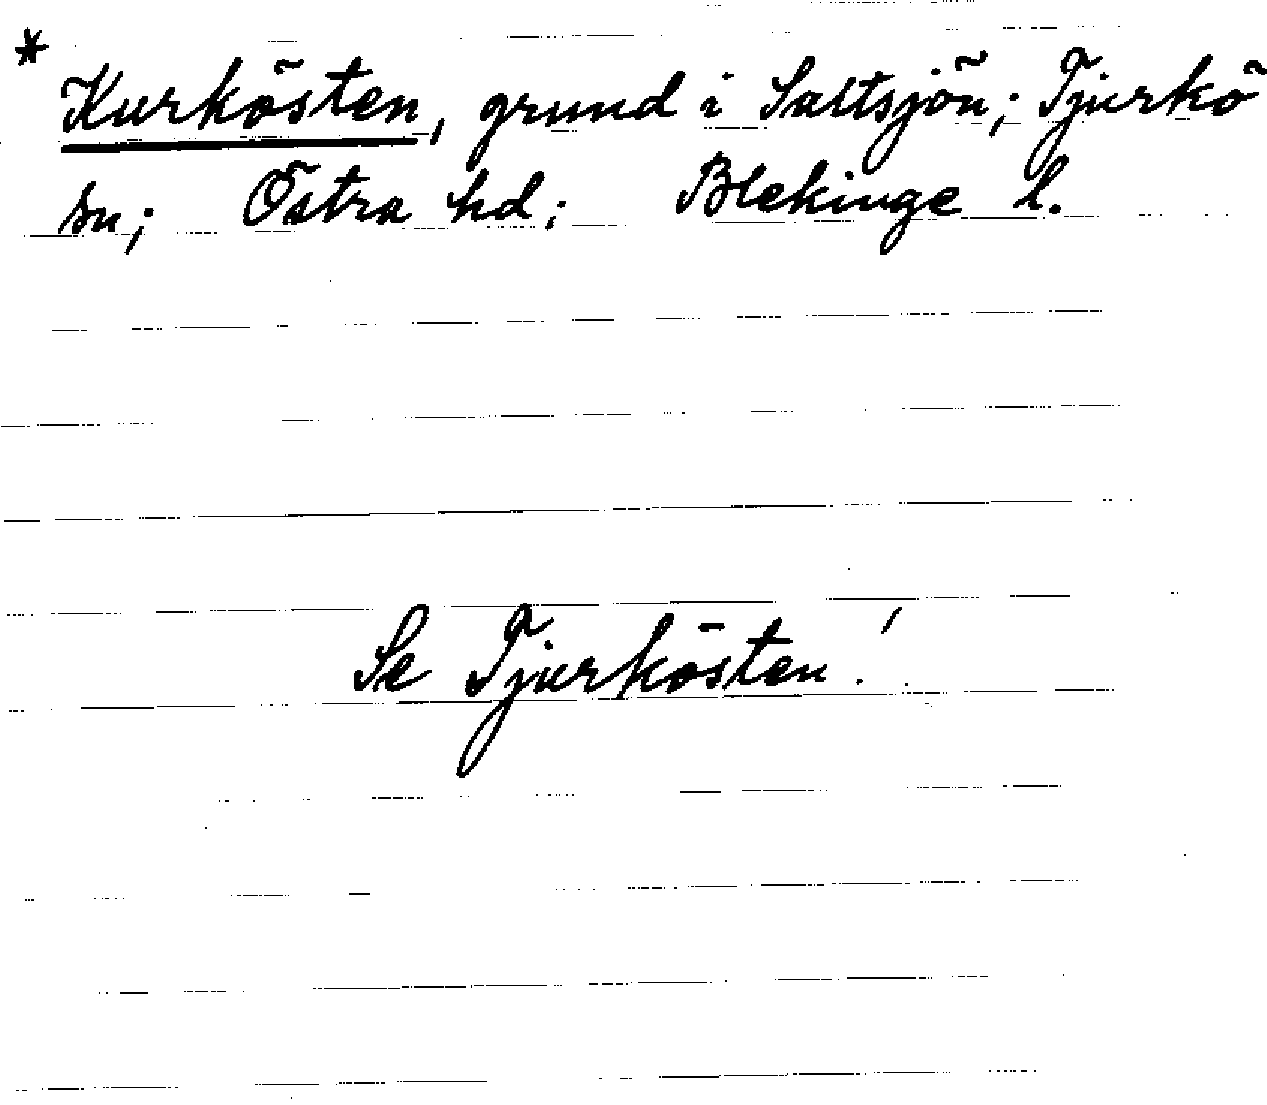 * Kurkösten, grund i Saltsjön; Tjurkö
sn; Östra hd; Blekinge l.
Se Tjurkösten!